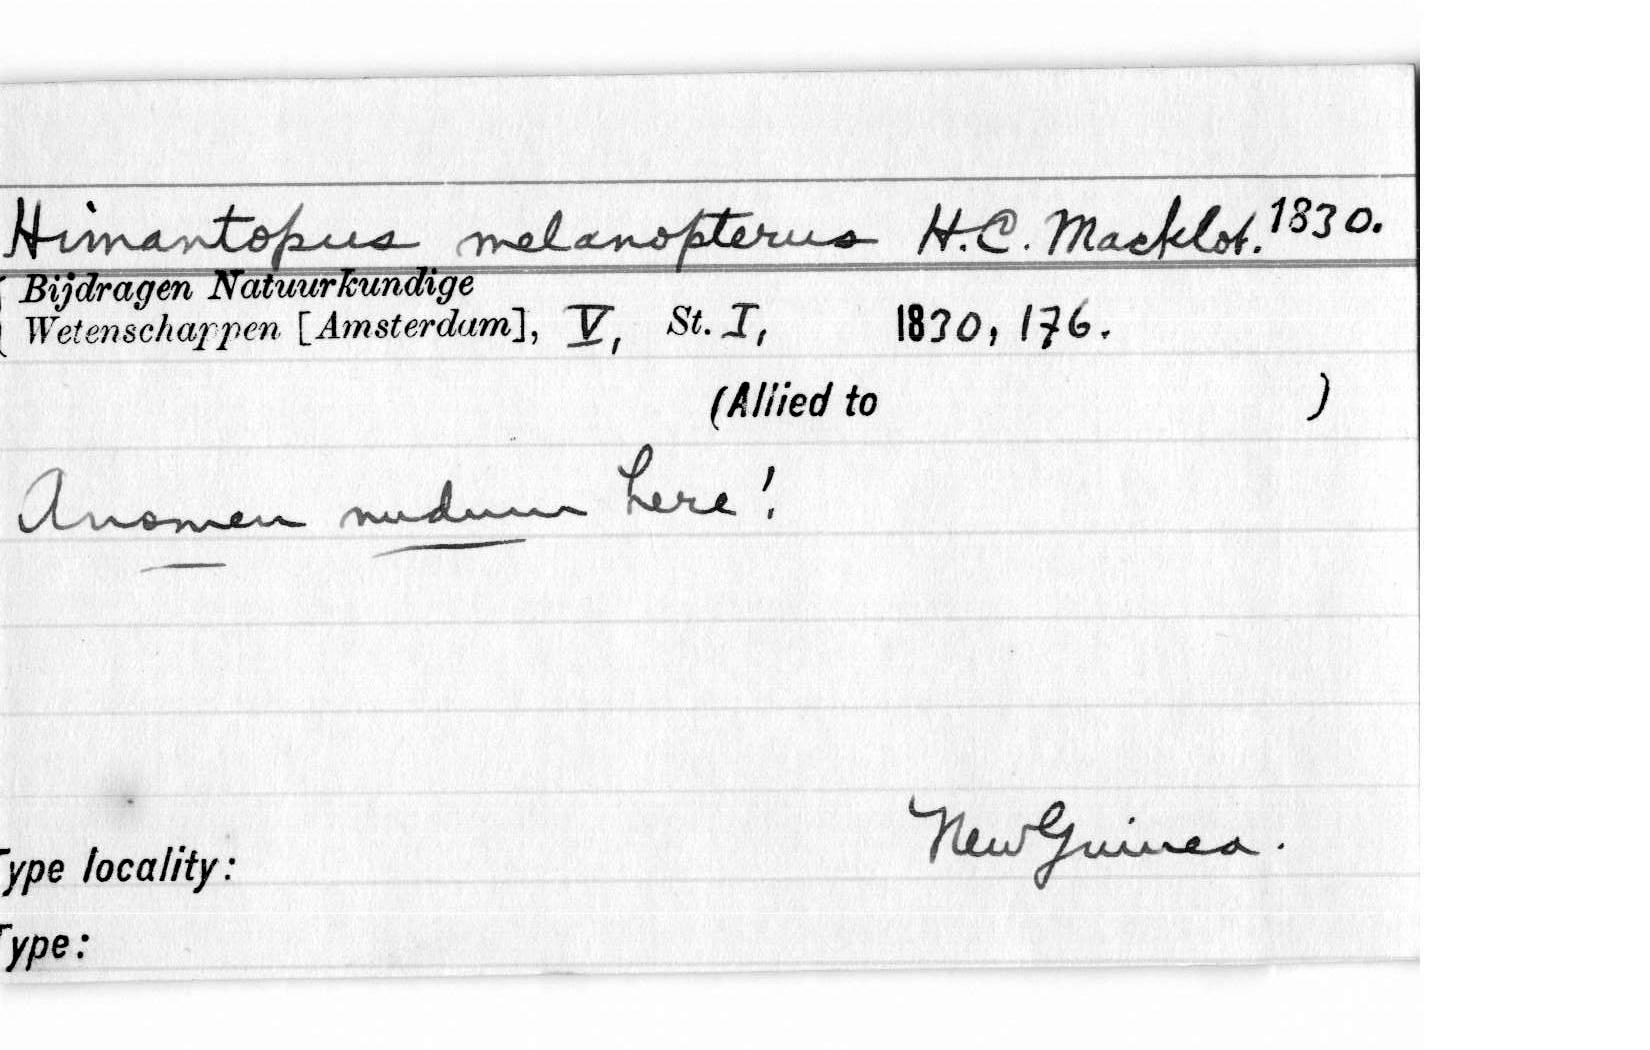 Himantopus melanopterus H.C. Macklot. 1830.
Bijdragen Natuurkundige
Wetenschappen [Amsterdam], V, St. I, 1830, 176.
(Allied to )
A nomen nudum here!
New Guinea.
Type locality:
Type: